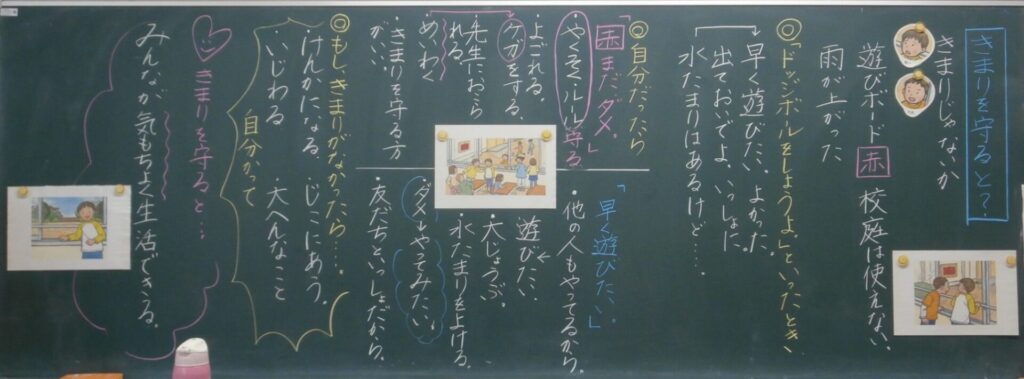 きまりを守ると?
きまりじゃないか
遊びボード 赤 校庭は使えない
雨が上がった
◎「ドッジボールをしようよ。」といったとき、
早く遊びたい、よかった。
出ておいでよ、いっしょに
水たまりはあるけど…。
◎自分だったら
赤「まだダメ。」
・やくそく・ルール守る
・よごれる。
・ケガをする。
・先生におこら
れる。
・めいわく
・きまりを守る方
がいい。
「早く遊びたい。」
・他の人もやってるから。
遊びたい
・大じょうぶ。
・水たまりを上ける。
・ダメ→やってみたい。
・友だちといっしょだから。
◎もし、きまりがなかったら…。
・けんかになる。じこにあう。
・いじわる 大へんなこと
自分かって
きまりを守ると…
みんなが気もちよく生活できる。